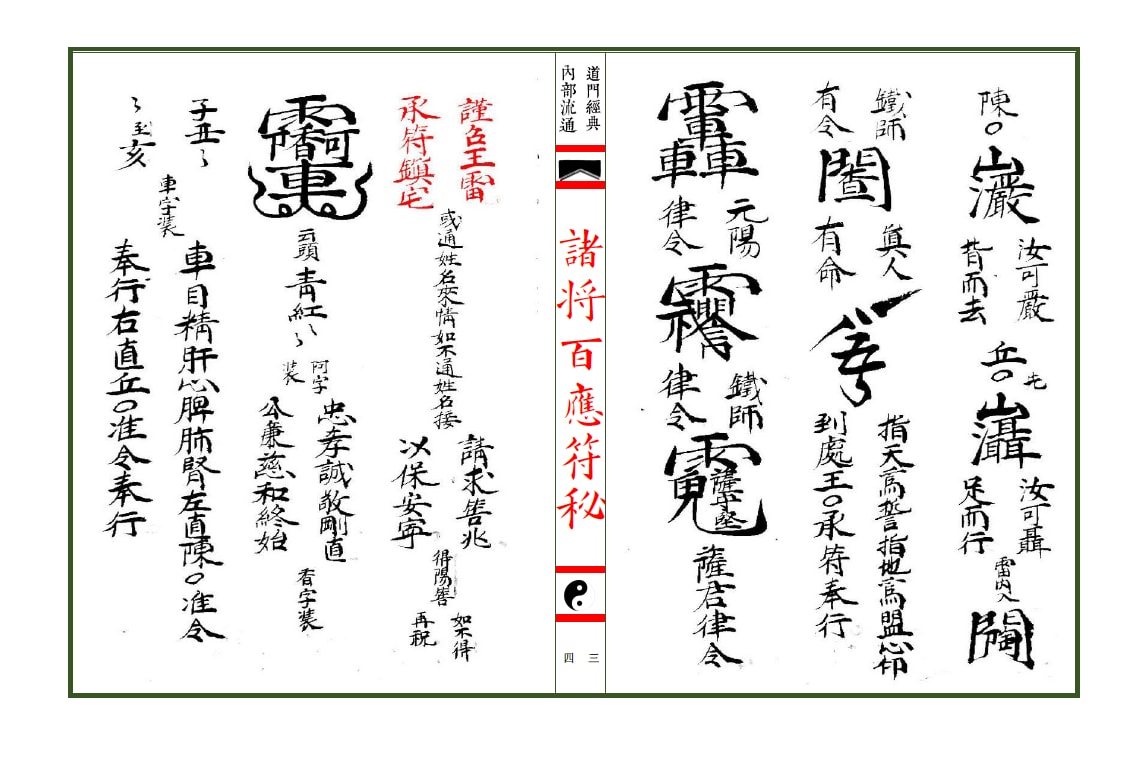 陳○
汝可嚴
背而去
丘○
汝可聶
足而行
雷內入
鐵師
有令
真人
有命
指天為誓指地為盟心印
到處王○承符奉行
元陽
律令
鐵師
律令
薩君律令
道門經典
內部流通
諸将百應符秘
三
四
謹召王雷
承符鎮宅
或通姓名來情如不通姓名接
請求善兆
以保安寧
得陽筶
如不得
再祝
云頭青紅
阿字
装
忠孝誠敬剛直
公兼慈和終始
香字装
子丑
至亥
車字装
車目精肝心脾肺腎左直陳○准令
奉行右直丘○准令奉行